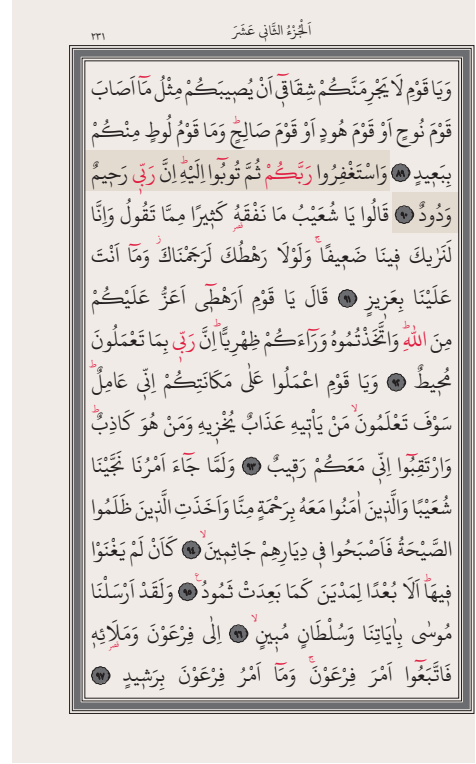 ٢٣١
اَلْجُزْءُ الثَّانِي عَشَرَ
وَيَا قَوْمِ لَا يَجْرِمَنَّكُمْ شِقَاقٖٓي اَنْ يُصٖيبَكُمْ مِثْلُ مَٓا اَصَابَ
قَوْمَ نُوحٍ اَوْ قَوْمَ هُودٍ اَوْ قَوْمَ صَالِحٍؕ وَمَا قَوْمُ لُوطٍ مِنْكُمْ
بِبَعٖيدٍ ﴿٨٩﴾ وَاسْتَغْفِرُوا رَبَّكُمْ ثُمَّ تُوبُٓوا اِلَيْهِؕ اِنَّ رَبّٖي رَحٖيمٌ
وَدُودٌ ﴿٩٠﴾ قَالُوا يَا شُعَيْبُ مَا نَفْقَهُ كَثٖيرًا مِمَّا تَقُولُ وَاِنَّا
لَنَرٰيكَ فٖينَا ضَعٖيفًاۚ وَلَوْلَا رَهْطُكَ لَرَجَمْنَاكَؗ وَمَٓا اَنْتَ
عَلَيْنَا بِعَزٖيزٍ ﴿٩١﴾ قَالَ يَا قَوْمِ اَرَهْطٖٓي اَعَزُّ عَلَيْكُمْ
مِنَ اللّٰهِؕ وَاتَّخَذْتُمُوهُ وَرَٓاءَكُمْ ظِهْرِيًّاؕ اِنَّ رَبّٖي بِمَا تَعْمَلُونَ
مُحٖيطٌ ﴿٩٢﴾ وَيَا قَوْمِ اعْمَلُوا عَلٰى مَكَانَتِكُمْ اِنّٖي عَامِلٌؕ
سَوْفَ تَعْلَمُونَۙ مَنْ يَأْتٖيهِ عَذَابٌ يُخْزٖيهِ وَمَنْ هُوَ كَاذِبٌؕ
وَارْتَقِبُٓوا اِنّٖي مَعَكُمْ رَقٖيبٌ ﴿٩٣﴾ وَلَمَّا جَٓاءَ اَمْرُنَا نَجَّيْنَا
شُعَيْبًا وَالَّذٖينَ اٰمَنُوا مَعَهُ بِرَحْمَةٍ مِنَّا وَاَخَذَتِ الَّذٖينَ ظَلَمُوا
الصَّيْحَةُ فَاَصْبَحُوا فٖي دِيَارِهِمْ جَاثِمٖينَۙ ﴿٩٤﴾ كَاَنْ لَمْ يَغْنَوْا
فٖيهَاؕ اَلَا بُعْدًا لِمَدْيَنَ كَمَا بَعِدَتْ ثَمُودُ ﴿٩٥﴾ وَلَقَدْ اَرْسَلْنَا
مُوسٰى بِاٰيَاتِنَا وَسُلْطَانٍ مُبٖينٍۙ ﴿٩٦﴾ اِلٰى فِرْعَوْنَ وَمَلَائِهٖ
فَاتَّبَعُٓوا اَمْرَ فِرْعَوْنَۚ وَمَٓا اَمْرُ فِرْعَوْنَ بِرَشٖيدٍ ﴿٩٧﴾